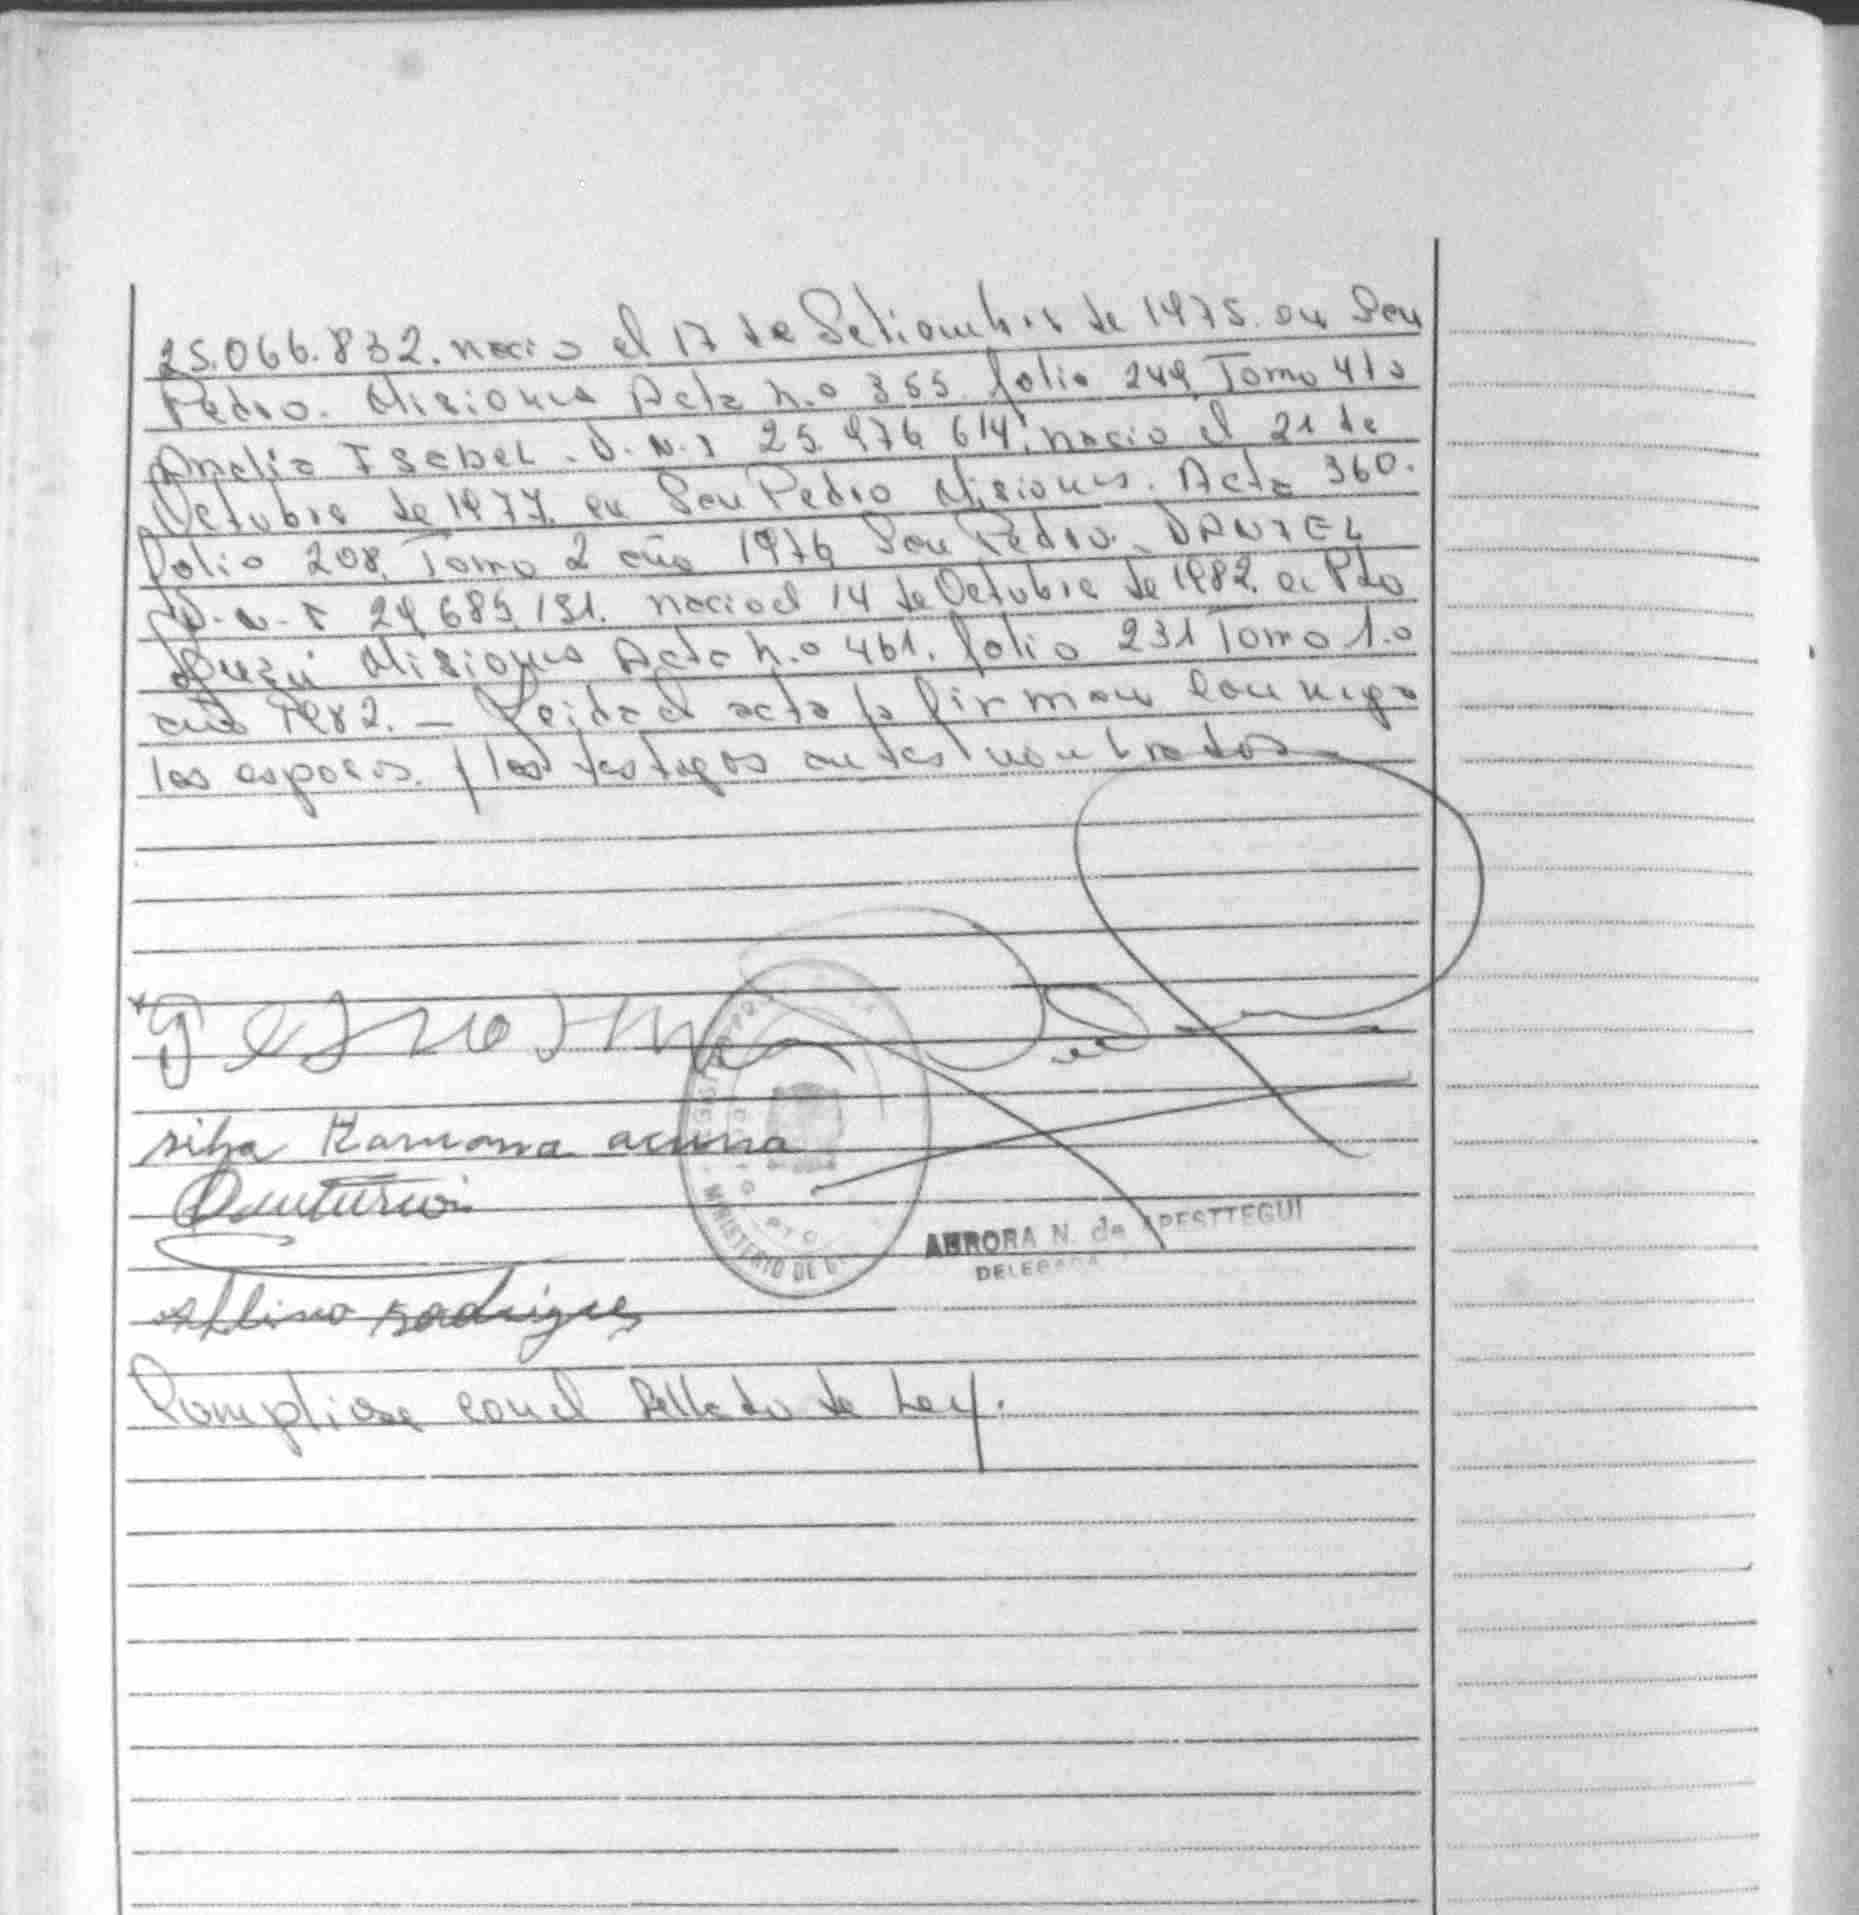 25.066.832. nacio el 17 de Setiembre de 1975. en San
Pedro. Misiones Acta n.o 355. folio 249 Tomo 4to
Analia Isabel. D.N.I 25.976 614. nacio el 21 de
Octubre de 1977. en San Pedro Misiones. Acta 360.
folio 208 Tomo 2 año 1976 San Pedro. DANIEL
D.N.I 29.685.191. nacio el 14 de Octubre de 1982. en Pto
Iguazú Misiones Acta n.o 461. folio 231 Tomo 1.o
año 1982. — Leida el acta la firman conmigo
los esposos. y los testigos antes nombrados
Ramona acuña
Albino rodrigues
AURORA N. de APESTTEGUI
DELEGADA
MINISTERIO DE
Cumpliose con el Sellado de Ley.